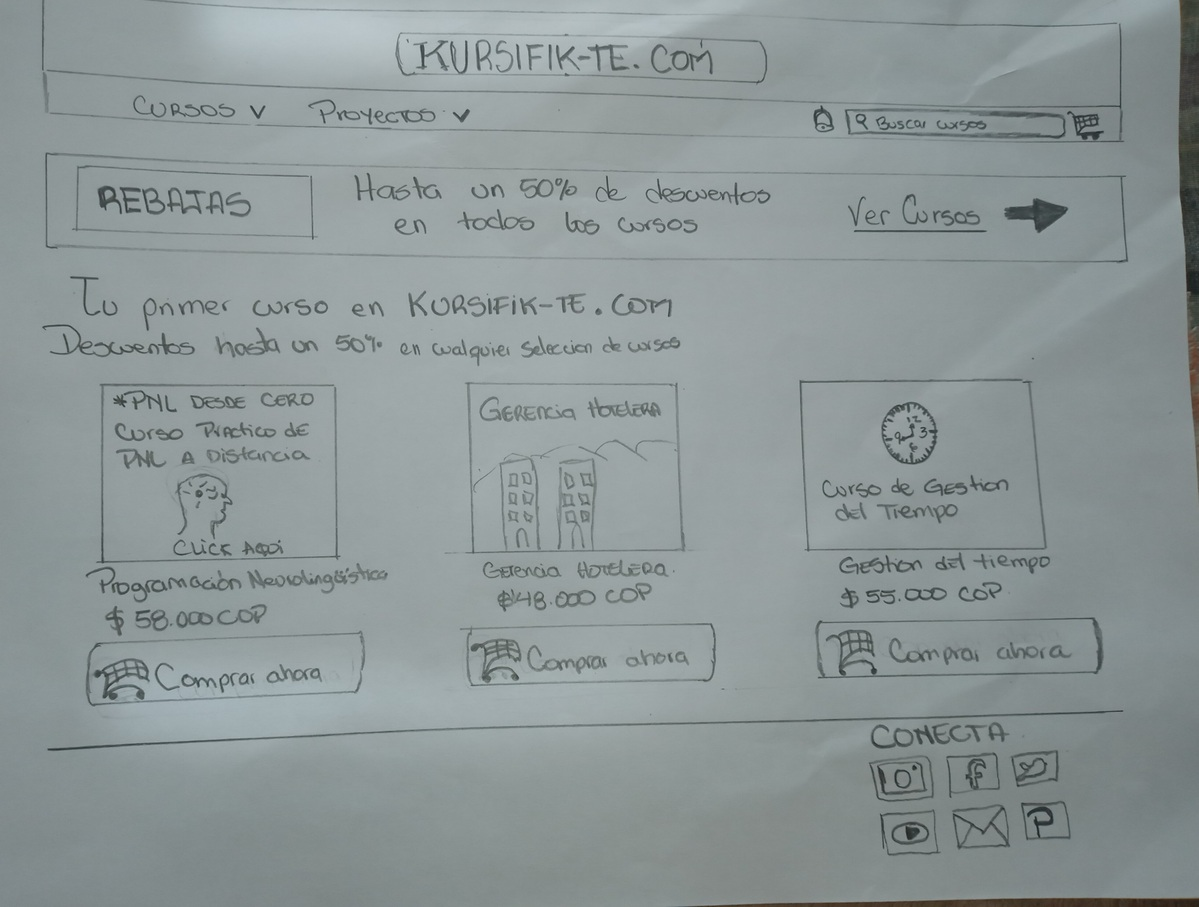 KURSIFIK-TE.COM
CURSOS V Proyectos v
Buscar cursos
REBAJAS
Hasta un 50% de descuentos
en todos los cursos
Ver Cursos
Tu primer curso en KURSIFIK-TE.COM
Descuentos hasta un 50% en cualquier seleccion de cursos
*PNL DESDE CERO
Curso Practico de
PNL A Distancia
CLICK AQUI
Programación Neurolingüistica
$ 58.000 COP
Comprar ahora
GERENCIA HOTELERA
GERENCIA HOTELERA.
$ 48.000 COP
Comprar ahora
12
9 3
6
Curso de Gestion
del Tiempo
Gestion del tiempo
$ 55.000 COP
Comprar ahora
CONECTA
f
P